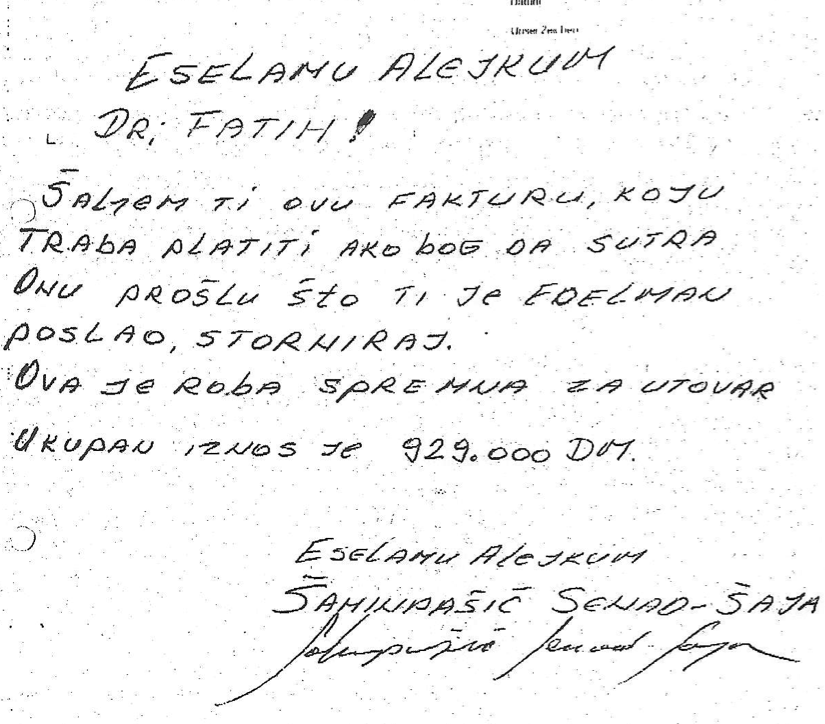 Datum
Unser Zeichen
ESELAMU ALEJKUM
DR; FATIH!
ŠALJEM TI OVU FAKTURU, KOJU
TRABA PLATITI AKO BOG DA SUTRA
ONU PROŠLU ŠTO TI JE EDELMAN
POSLAO, STORNIRAJ.
OVA JE ROBA SPREMNA ZA UTOVAR
UKUPAN IZNOS JE 929.000 DM.
ESELAMU ALEJKUM
ŠAHINPAŠIĆ SENAD-ŠAJA